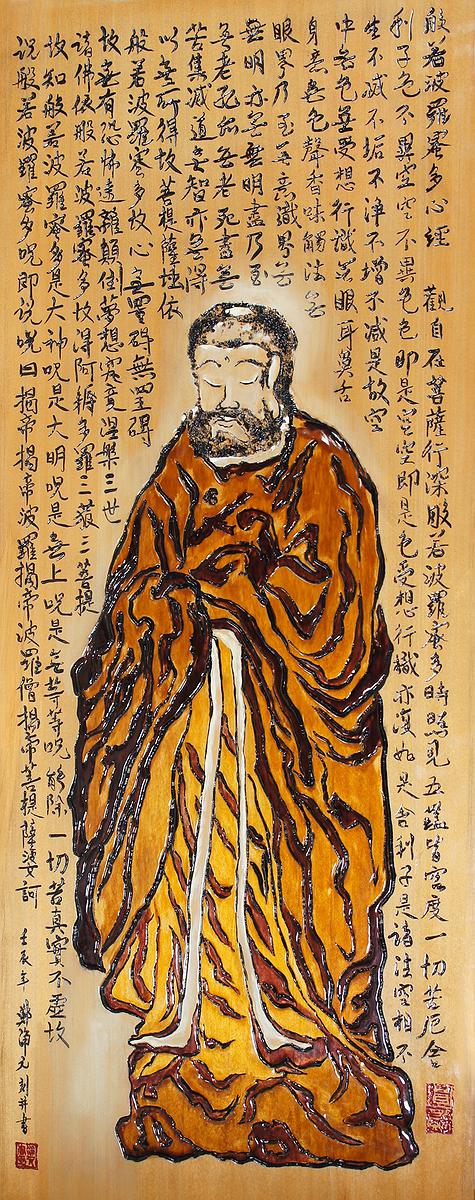 般若波羅蜜多心經 觀自在菩薩行深般若波羅蜜多時照見五蘊皆空度一切苦厄舍
利子色不異空空不異色色即是空空即是色受想行識亦復如是舍利子是諸法空相不
生不滅不垢不淨不增不減是故空
中無色無受想行識無眼耳鼻舌
身意無色聲香味觸法無
眼界乃至無意識界無
無明亦無無明盡乃至
無老死亦無老死盡無
苦集滅道無智亦無得
以無所得故菩提薩埵依
般若波羅蜜多故心無罣碍無罣碍
故無有恐怖遠離顛倒夢想究竟涅槃三世
諸佛依般若波羅蜜多故得阿耨多羅三藐三菩提
故知般若波羅蜜多是大神呪是大明呪是無上呪是無等等呪能除一切苦真實不虛故
說般若波羅蜜多呪即說呪曰揭帝揭帝波羅揭帝波羅僧揭帝菩提薩婆訶
壬辰年 鄭 元刻并書